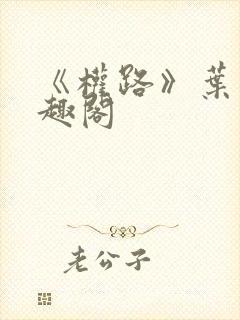 《權路》葉
趣閣
老公子